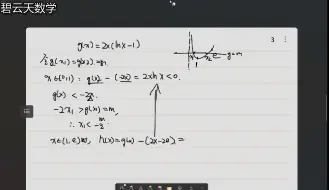 碧云天数学
3
g(x)=2x(lnx-1)
g(x₁)=g(x₂)=m,
g=m
x∈(0,1): g(x)-(-2x)=2xlnx<0.
g(x)<-2x
-2x₁>g(x₁)=m,
∴x₁<-m/2
x∈(1,e)时, h(x)=g(x)-(2x-2e)=